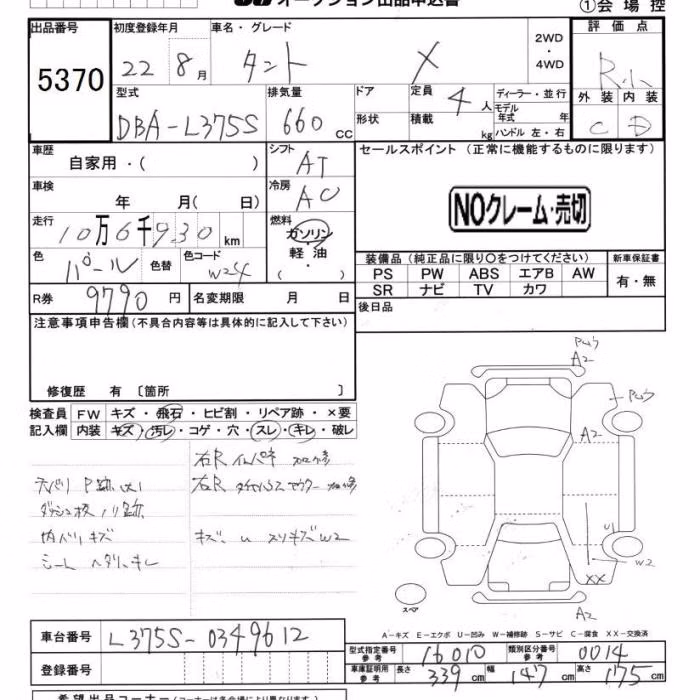 オークション出品申込書
①会場控
出品番号 初度登録年月 車名・グレード 2WD・4WD 評価点
5370 22 8月 タント X R小
型式 排気量 ドア 定員 4人 ディーラー・並行 外装 内装
DBA-L375S 660cc 形状 積載 kg モデル年式 年 ハンドル 左・右 C D
車歴 自家用・( ) シフト AT セールスポイント (正常に機能するものに限ります)
車検 年 月( 日) 冷房 AC
NOクレーム・売切
走行 10万6千930km 燃料 ガソリン・軽油・( )
色 パール 色替 色コード W24
装備品 (純正品に限り○をつけてください) 新車保証書
PS PW ABS エアB AW 有・無
SR ナビ TV カワ
R券 9790円 名変期限 月 日 後日品
注意事項申告欄(不具合内容等は具体的に記入して下さい)
修復歴 有 〔箇所 〕
検査員 FW キズ・飛石・ヒビ割・リペア跡・×要
記入欄 内装 キズ・汚レ・コゲ・穴・スレ・キレ・破レ
右Rインパネ 加修
天バリ
右R
ダッシュ板ノリ跡
内バリキズ キズ、U スリキズW2
シート ヘタリ、キレ
A2
A2
U1
W2
XX
A2
スペア
A-キズ E-エクボ U-凹み W-補修跡 S-サビ C-腐食 XX-交換済
車台番号 L375S-0349612
型式指定番号 参考 16010 類別区分番号 参考 0014
登録番号
車庫証明用 参考 長さ 339cm 幅 147cm 高さ 175cm
希望出品コーナー